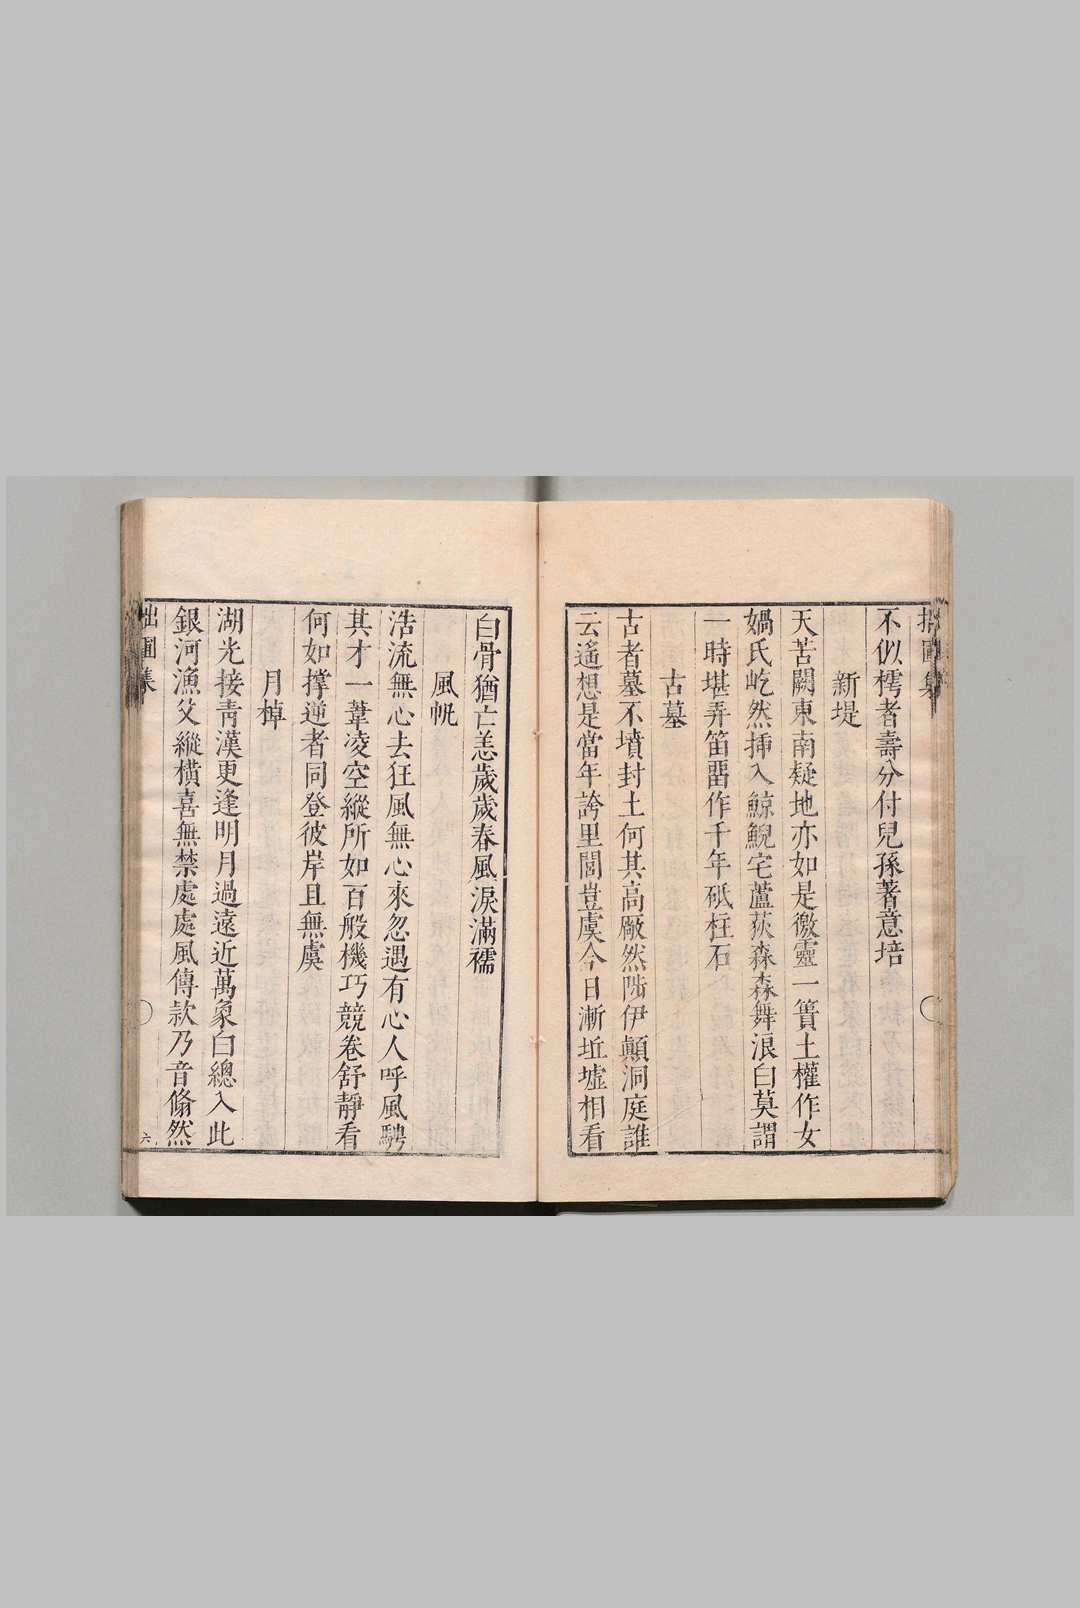 拙圃集
不似樗者壽分付兒孫著意培
新堤
天苦闕東南疑地亦如是徼靈一簣土權作女
媧氏屹然揷入鯨鯢宅蘆荻森森舞浪白莫謂
一時堪弄笛畱作千年砥柱石
古墓
古者墓不墳封土何其高厰然陟伊顛洞庭誰
云遙想是當年誇里閭豈虞今日漸坵墟相看
白骨猶亡恙歲歲春風淚滿襦
風帆
浩流無心去狂風無心來忽遇有心人呼風騁
其才一葦凌空縱所如百般機巧競卷舒靜看
何如撑逆者同登彼岸且無虞
月棹
湖光接靑漢更逢明月過遠近萬象白總入此
銀河漁父縱橫喜無禁處處風傳欵乃音翛然
拙圃集
六